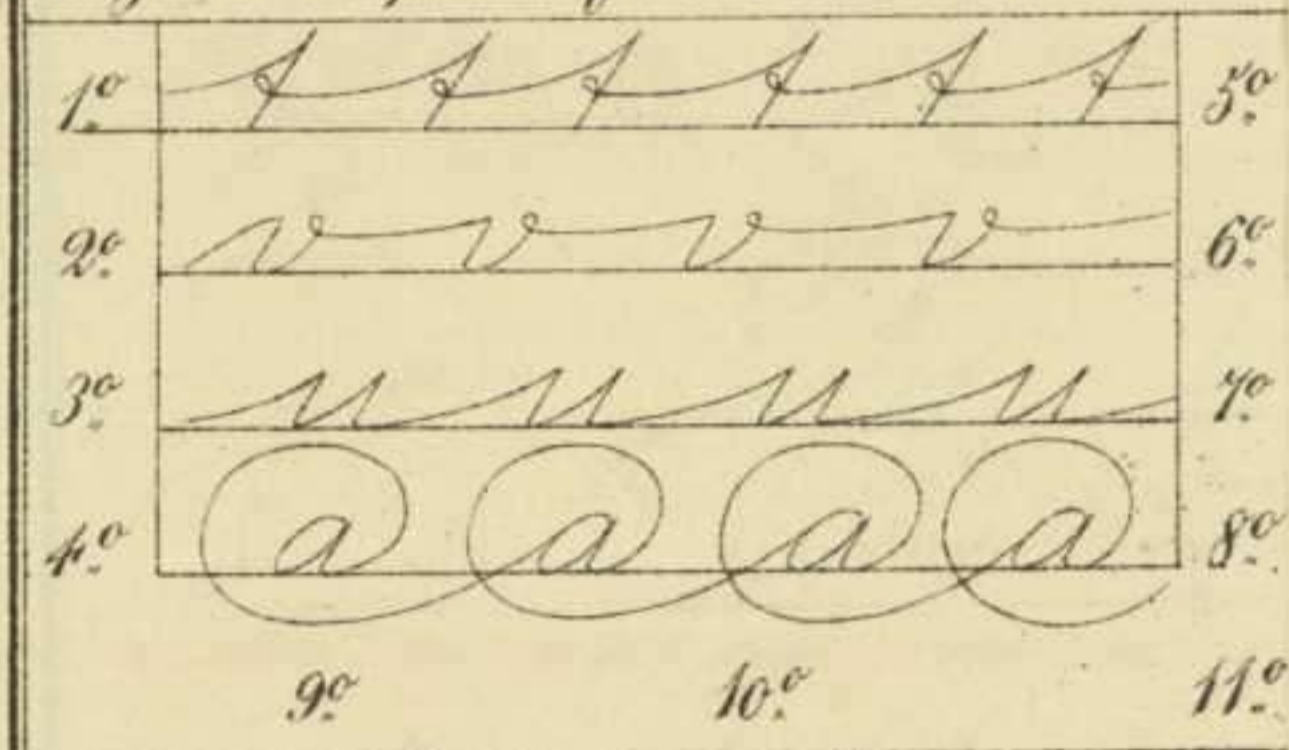 1º 5º
2º v v v v 6º
3º u u u u 7º
4º a a a a 8º
9º 10º 11º